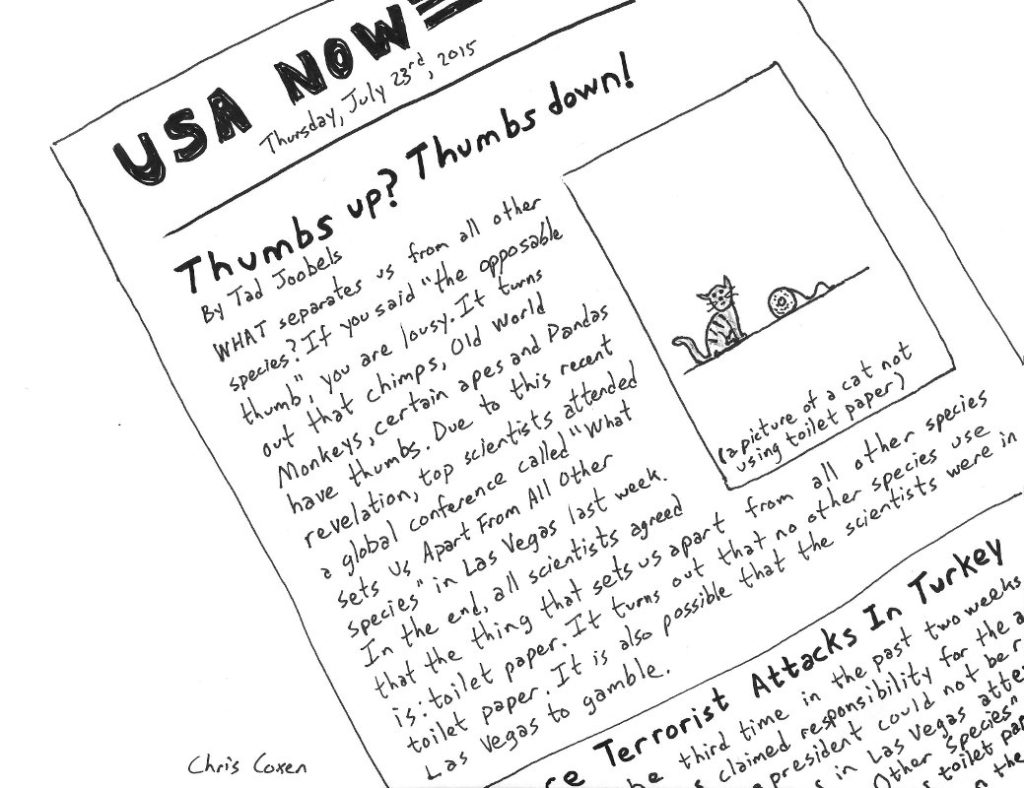 USA NOW
Thursday, July 23rd, 2015
Thumbs up? Thumbs down!
By Tad Joobels
WHAT separates us from all other
species? If you said "the opposable
thumb", you are lousy. It turns
out that chimps, Old World
Monkeys, certain apes and Pandas
have thumbs. Due to this recent
revelation, top scientists attended
a global conference called "What
sets Us Apart From All Other
Species" in Las Vegas last week.
In the end, all scientists agreed
that the thing that sets us apart from all other species
is: toilet paper. It turns out that no other species use
toilet paper. It is also possible that the scientists were in
Las Vegas to gamble.
(a picture of a cat not
using toilet paper)
Terrorist Attacks In Turkey
third time in the past two weeks
claimed responsibility for the
president could not be
in Las Vegas
Other Species"
toilet
the
Chris Coxen